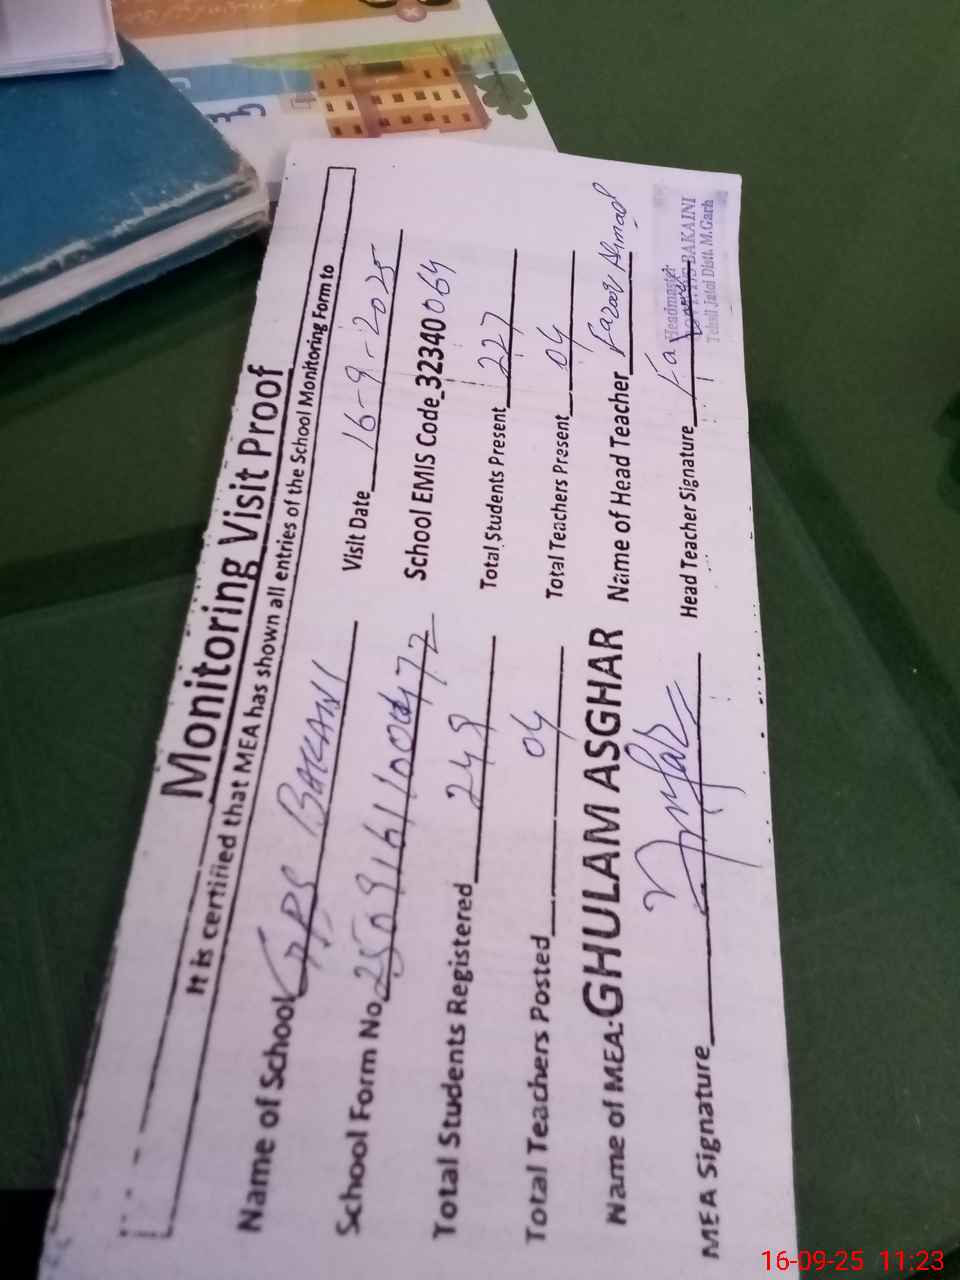 Monitoring Visit Proof
It is certified that MEA has shown all entries of the School Monitoring Form to
Name of School GPS BAKAINI Visit Date 16-9-2025
School Form No. School EMIS Code 32340064
Total Students Registered 249 Total Students Present 227
Total Teachers Posted 04 Total Teachers Present 04
Name of MEA: GHULAM ASGHAR Name of Head Teacher Farooq Ahmad
MEA Signature Head Teacher Signature
Headmaster
BAKAINI
Tehsil Jatoi Distt M.Garh
16-09-25 11:23